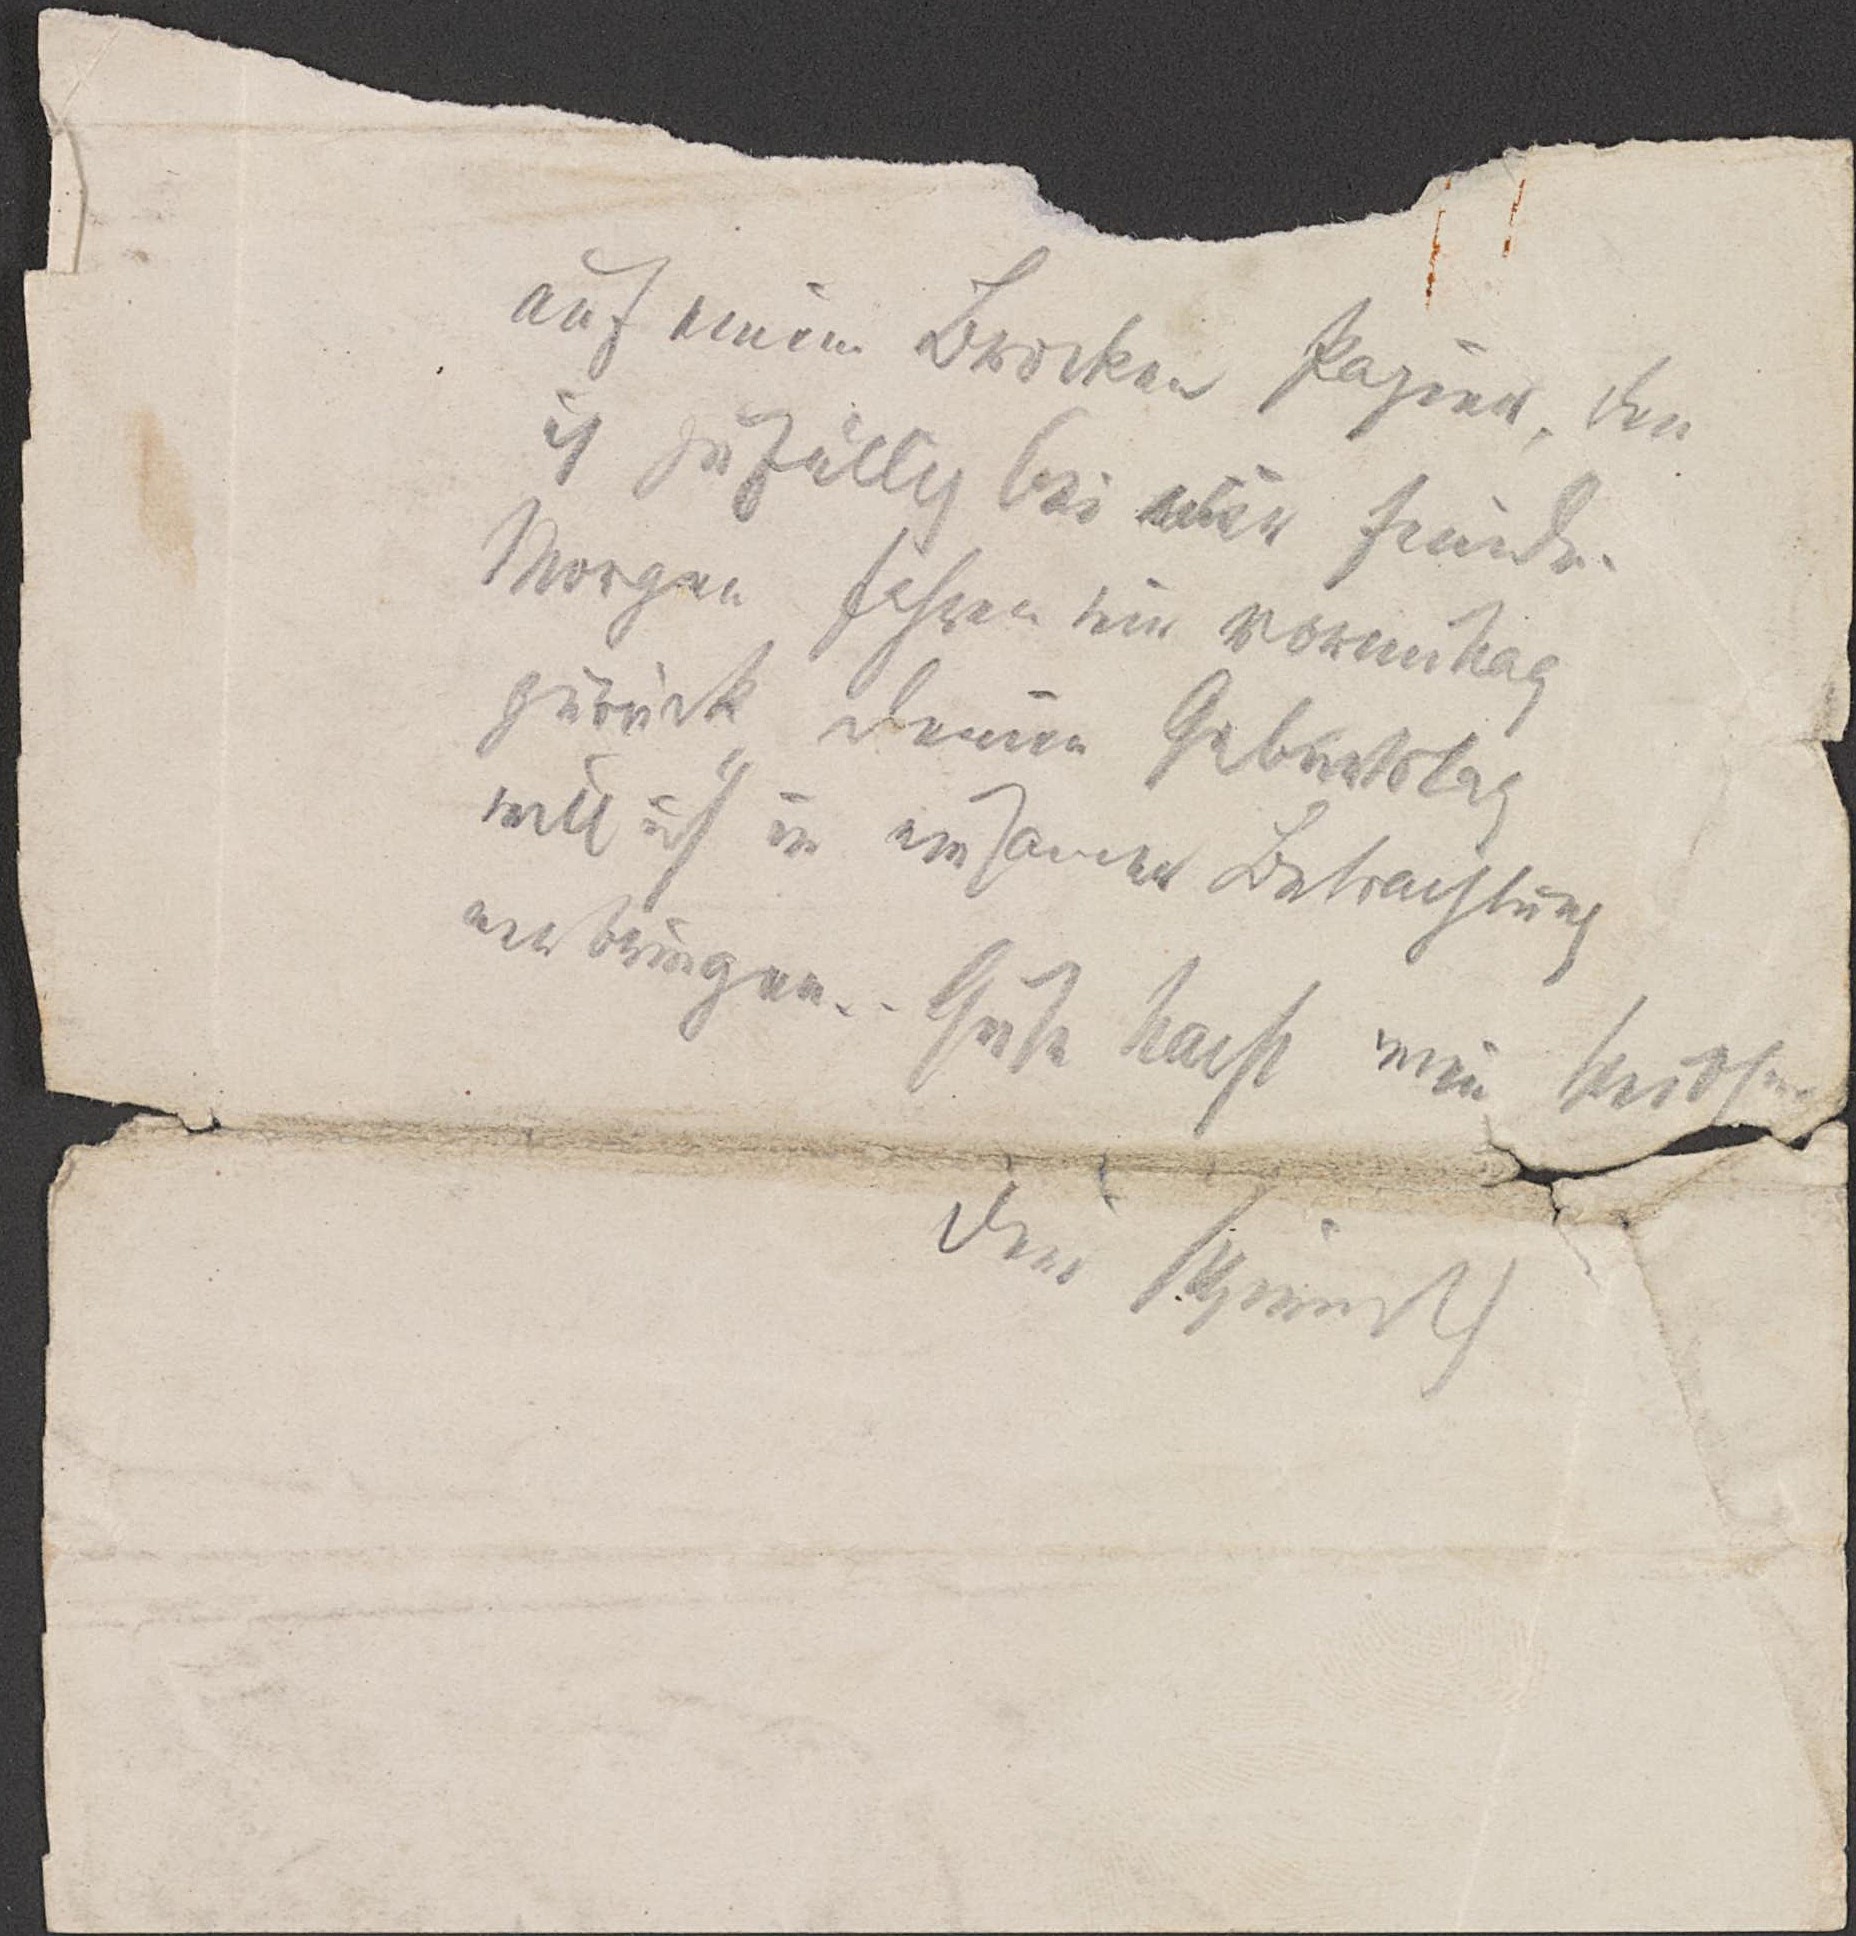 auf einem Brocken Papier, den
ich zufällig bei mir finde.
Morgen fahren wir vormittag
zurück deinen Geburtstag
will ich in einsamer Betrachtung
verbringen.. Gute Nacht mein
Dein